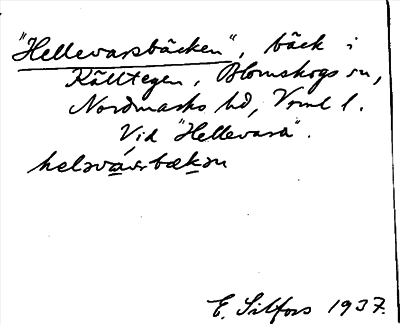 "Hellevarsbäcken", bäck i
Källtegen, Blomskogs sn,
Nordmarks hd, Vrml l.
Vid "Hellevara".
helavarsbækan
E. Silfors 1937.